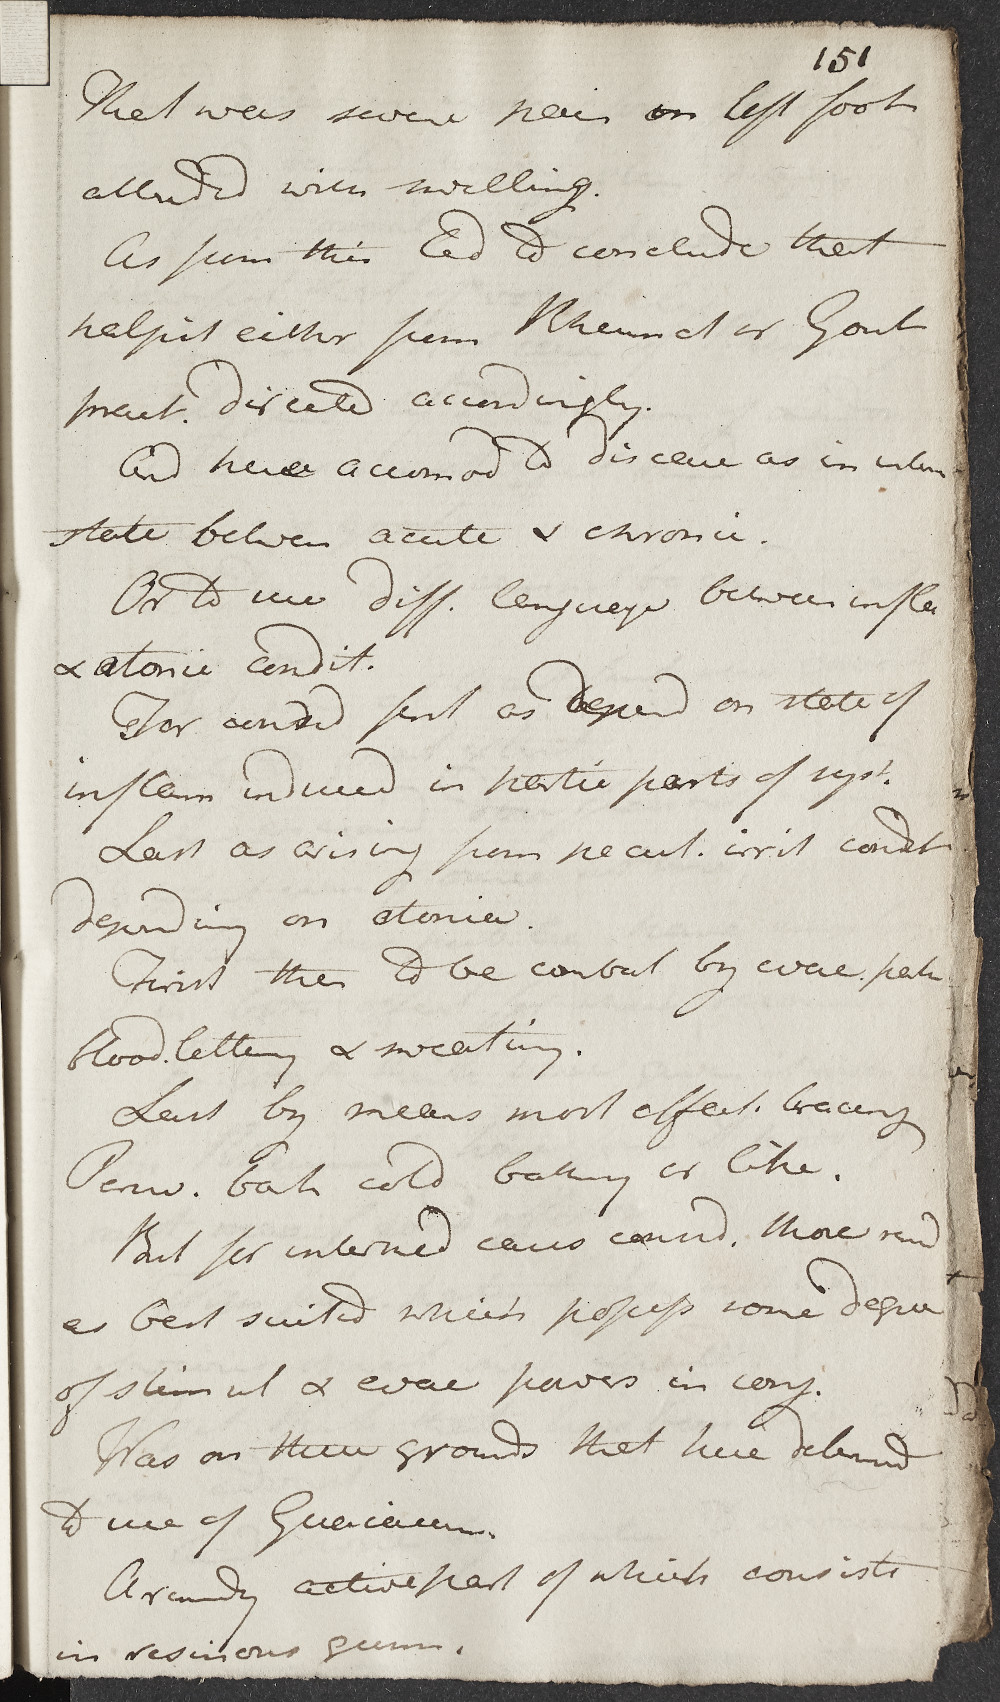 151
That was severe pain on left foot
attended with swelling.
As from this led to conclude that
either from Rheumat or Gout
pract. directed accordingly.
And here accomod to disease as in interm
state between acute & chronic.
Or to use diff. language between infla
& atonic condit.
For consid first as depend on state of
inflam induced in partic parts of syst.
Last as arising from pecul. irrit condit
depending on atonia.
First then to be combat by evac. patr
blood.letting & sweating.
Last by means most effect. bracing
Peruv. bark cold bathing or like.
But for intermed cases consid. those rem
as best suited which possess some degree
of stimul & evac powers in conj.
Was on these grounds that here determd
to use of Guaiacum.
A remedy active part of which consists
in resinous gum.